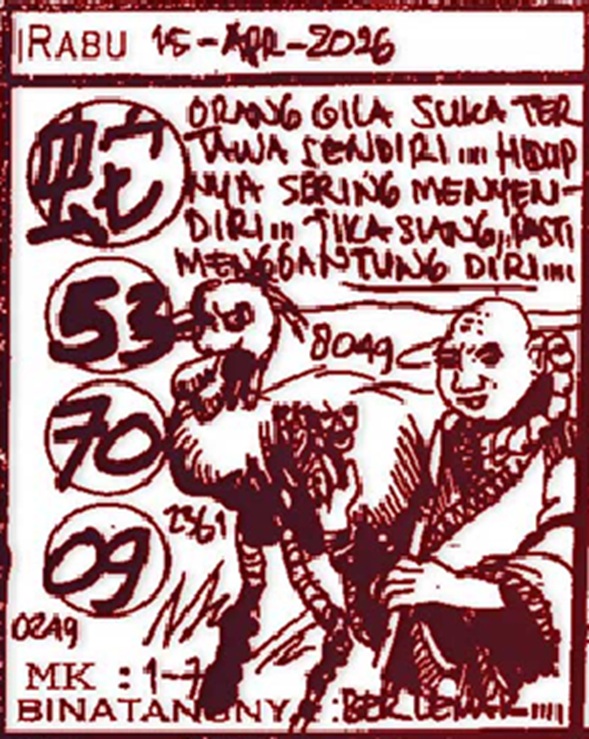 RABU 15-APR-2026
蛇
ORANG GILA SUKA TER
TAWA SENDIRI .... HIDUP
NYA SERING MENYEN-
DIRI ... JIKA SIANG, PASTI
MENGGANTUNG DIRI....
53
8049
70
2361
09
0249
MK : 1-7
BINATANGNYA :